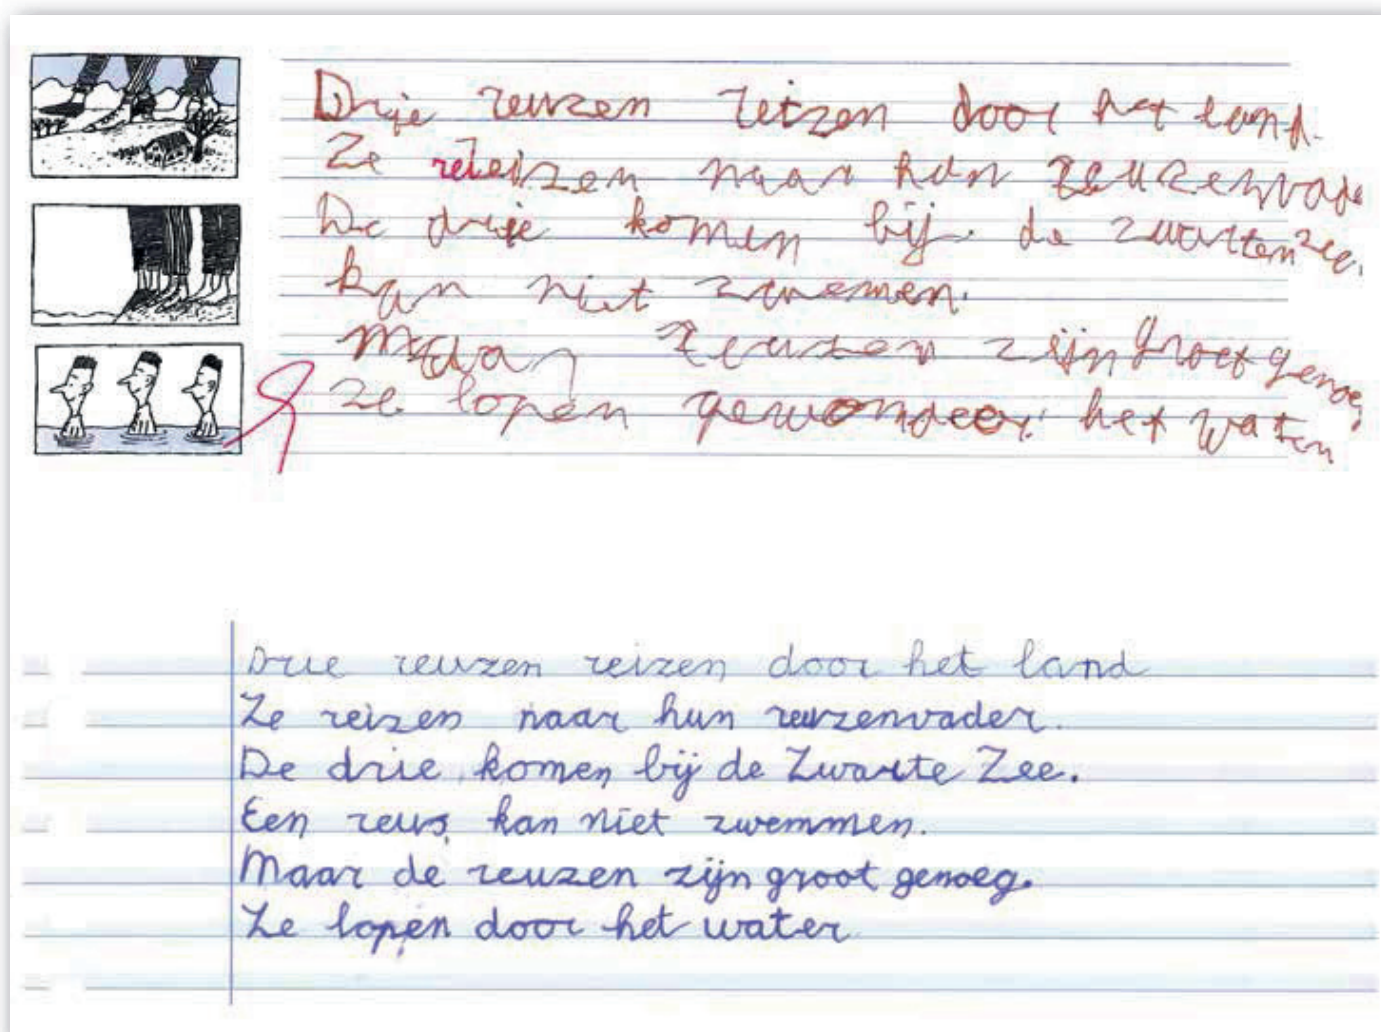 Drie reuzen reizen door het land.
Ze reizen naar hun reuzenvade
De drie komen bij de zwarten zee.
kan niet zwemen.
Maar reuzen zijn groot genoeg
ze lopen gewoon door het water
Drie reuzen reizen door het land
Ze reizen naar hun reuzenvader.
De drie komen bij de Zwarte Zee.
Een reus kan niet zwemmen.
Maar de reuzen zijn groot genoeg.
Ze lopen door het water